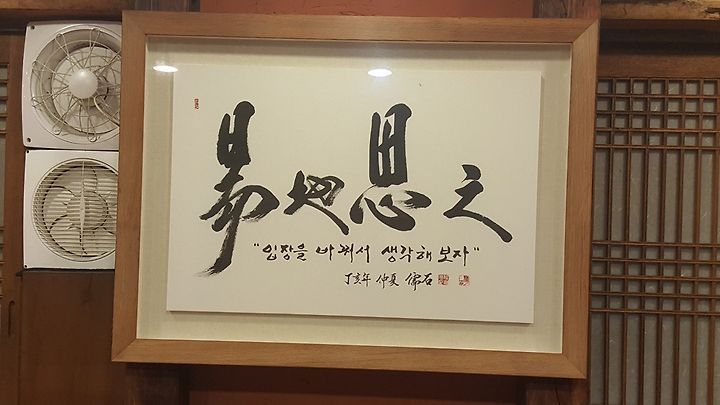 易地思之
"입장을 바꿔서 생각해 보자"
丁亥年 仲夏 儒石